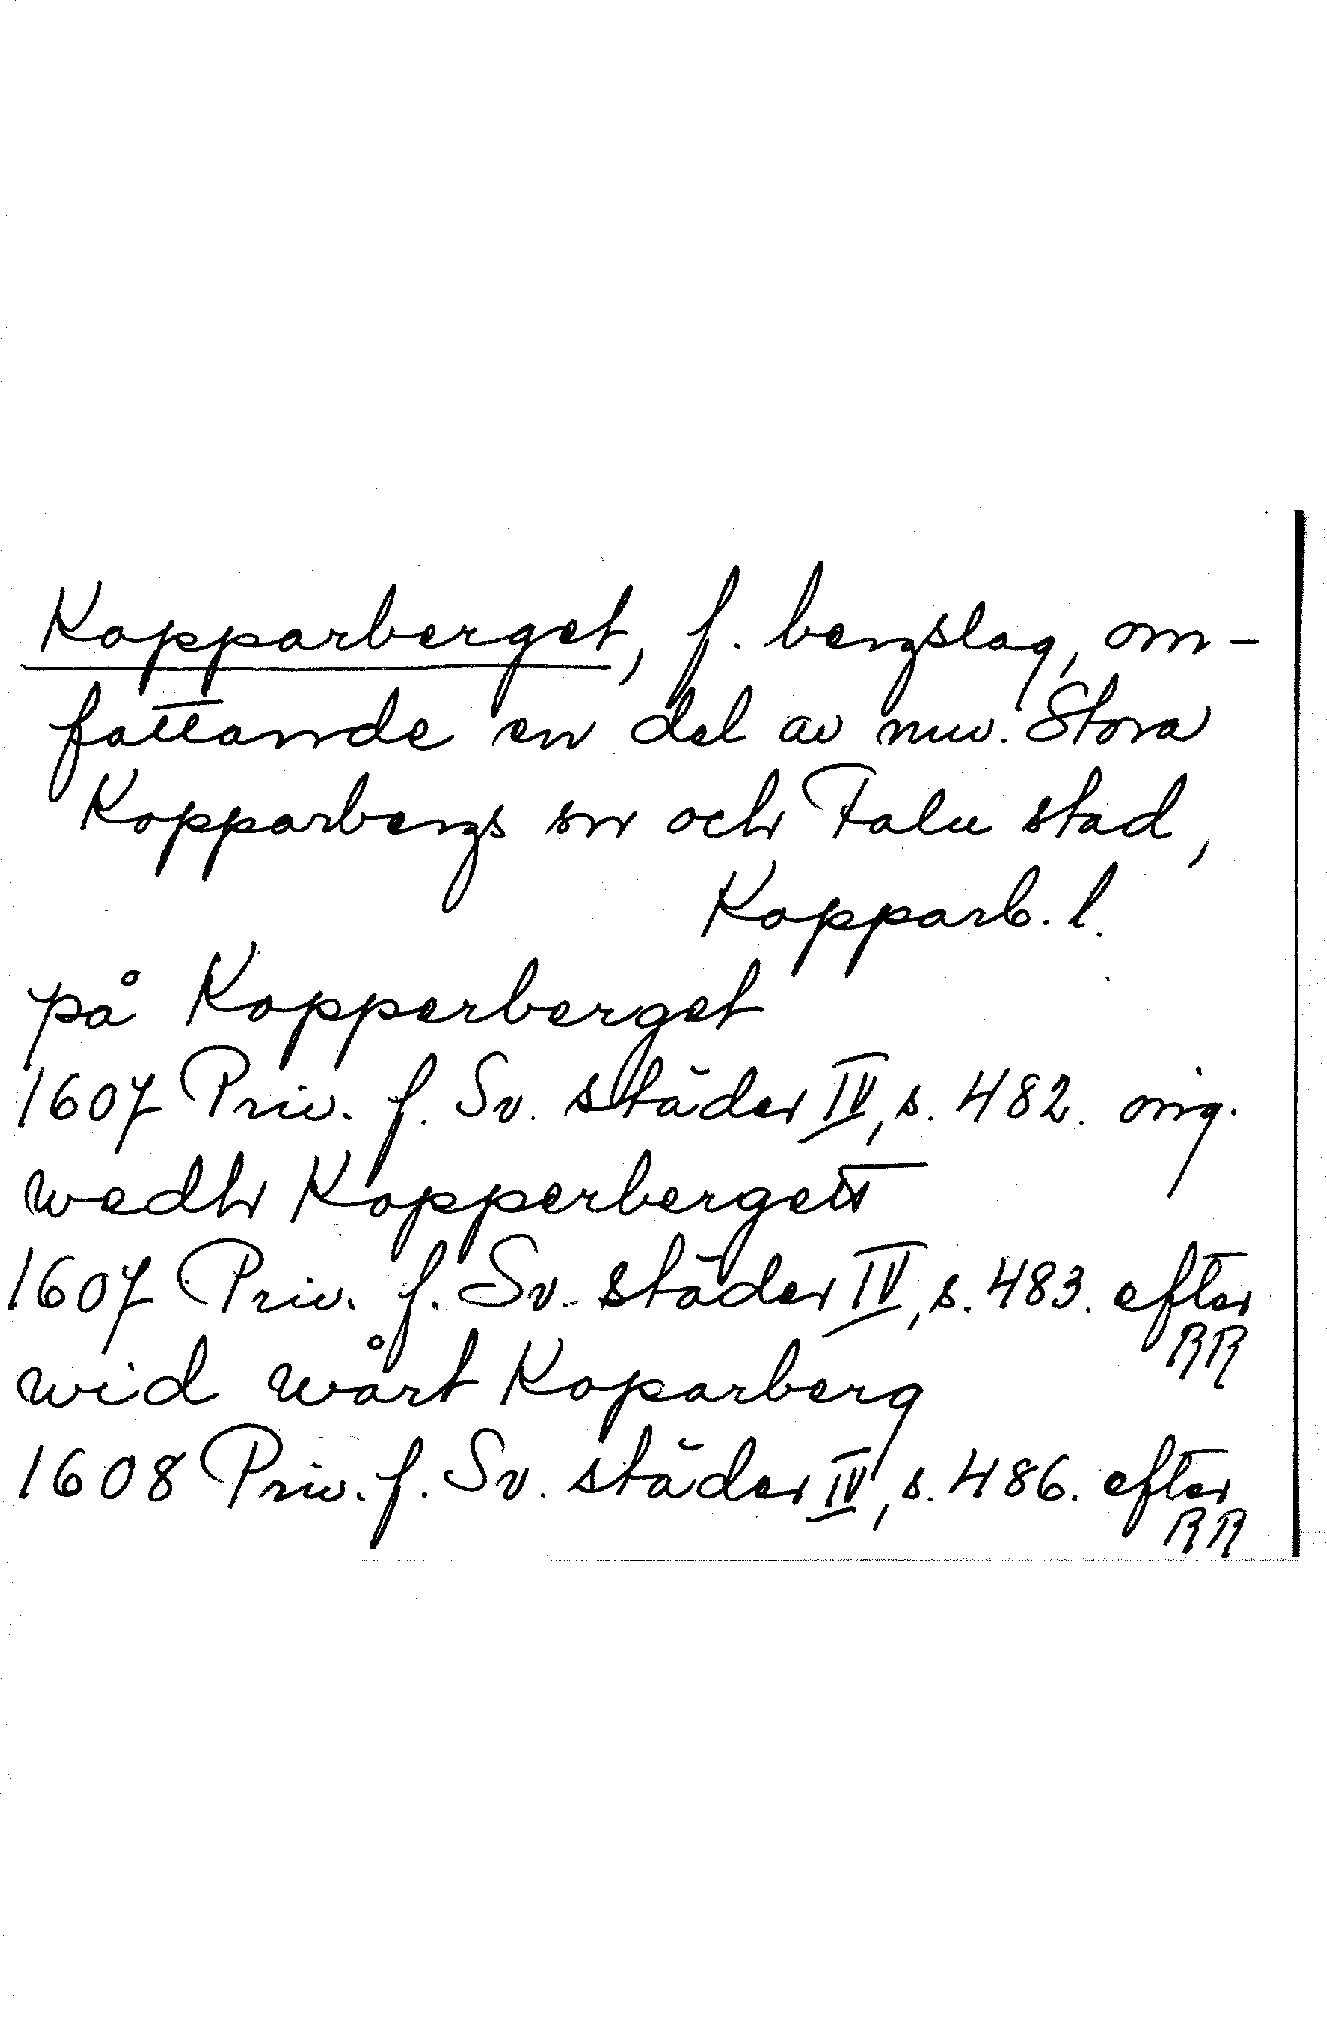 Kopparberget, f. bergslag, om-
fattande en del av nuv. Stora
Kopparbergs sn och Falu stad,
Kopparb. l.
på Kopperberget
1607 Priv. f. Sv. städer IV, s. 482. orig.
wedh Kopperbergett
1607 Priv. f. Sv. städer IV, s. 483. efter
RR
wid wårt Koparberg
1608 Priv. f. Sv. städer IV, s. 486. efter
RR